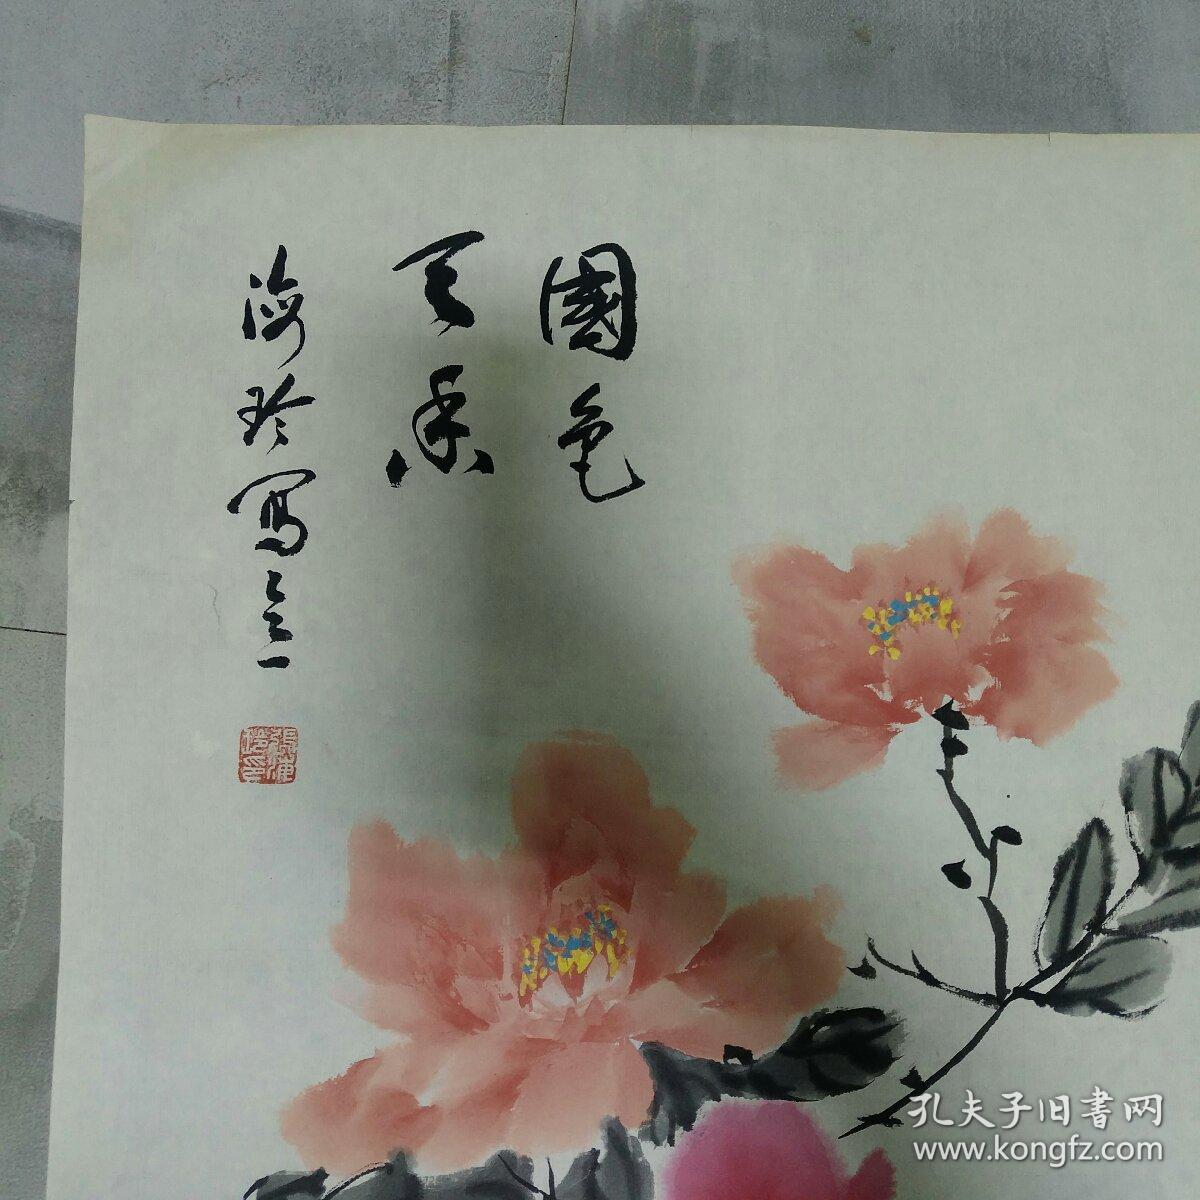 國色
天香
海玲寫意
孔夫子旧書网
www.kongfz.com